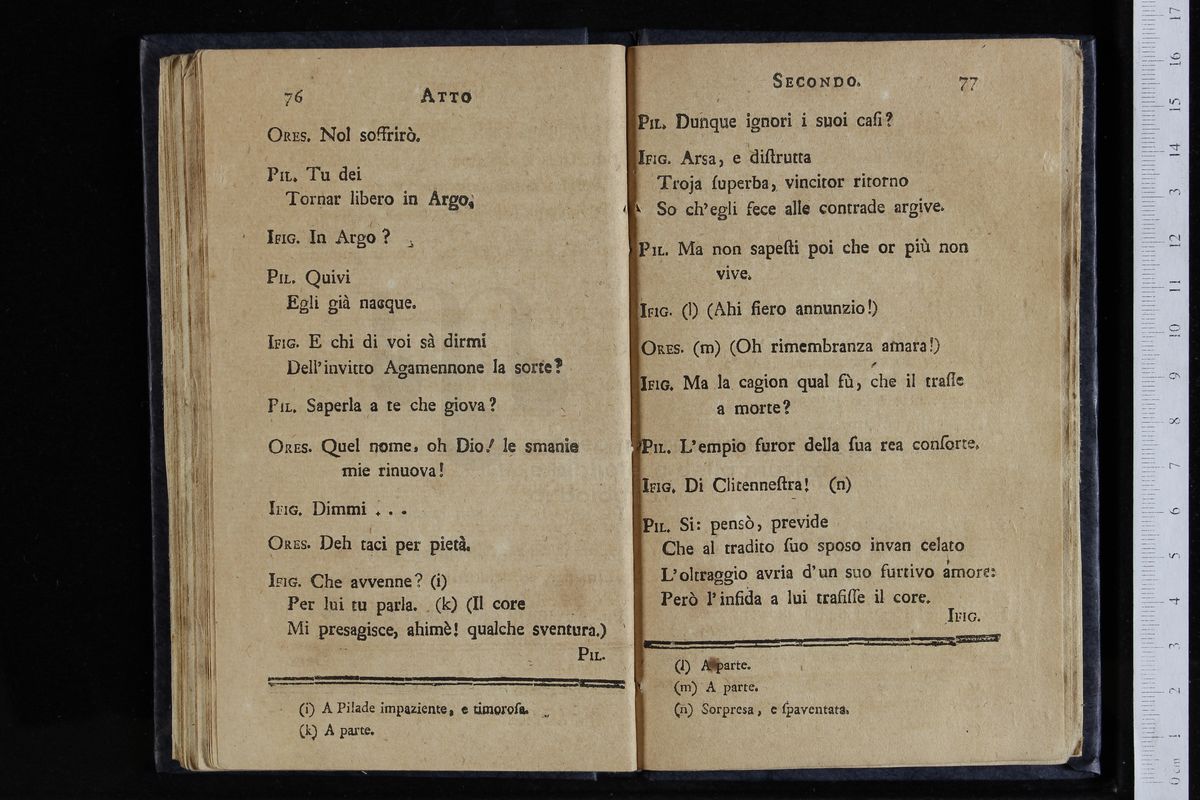 76 ATTO
ORES. Nol soffrirò.
PIL. Tu dei
Tornar libero in Argo,
IFIG. In Argo?
PIL. Quivi
Egli già nacque.
IFIG. E chi di voi sà dirmi
Dell'invitto Agamennone la sorte?
PIL. Saperla a te che giova?
ORES. Quel nome, oh Dio! le smanie
mie rinuova!
IFIG. Dimmi . . .
ORES. Deh taci per pietà.
IFIG. Che avvenne? (i)
Per lui tu parla. (k) (Il core
Mi presagisce, ahimè! qualche sventura.)
PIL.
(i) A Pilade impaziente, e timoroſa.
(k) A parte.
SECONDO. 77
PIL. Dunque ignori i suoi caſi?
IFIG. Arsa, e diſtrutta
Troja ſuperba, vincitor ritorno
So ch'egli fece alle contrade argive.
PIL. Ma non sapeſti poi che or più non
vive.
IFIG. (l) (Ahi fiero annunzio!)
ORES. (m) (Oh rimembranza amara!)
IFIG. Ma la cagion qual fù, che il traſſe
a morte?
PIL. L'empio furor della ſua rea conſorte.
IFIG. Di Clitenneſtra! (n)
PIL. Si: pensò, previde
Che al tradito ſuo sposo invan celato
L'oltraggio avria d'un suo furtivo amore:
Però l'infida a lui trafiſſe il core.
IFIG.
(l) A parte.
(m) A parte.
(n) Sorpresa, e ſpaventata.